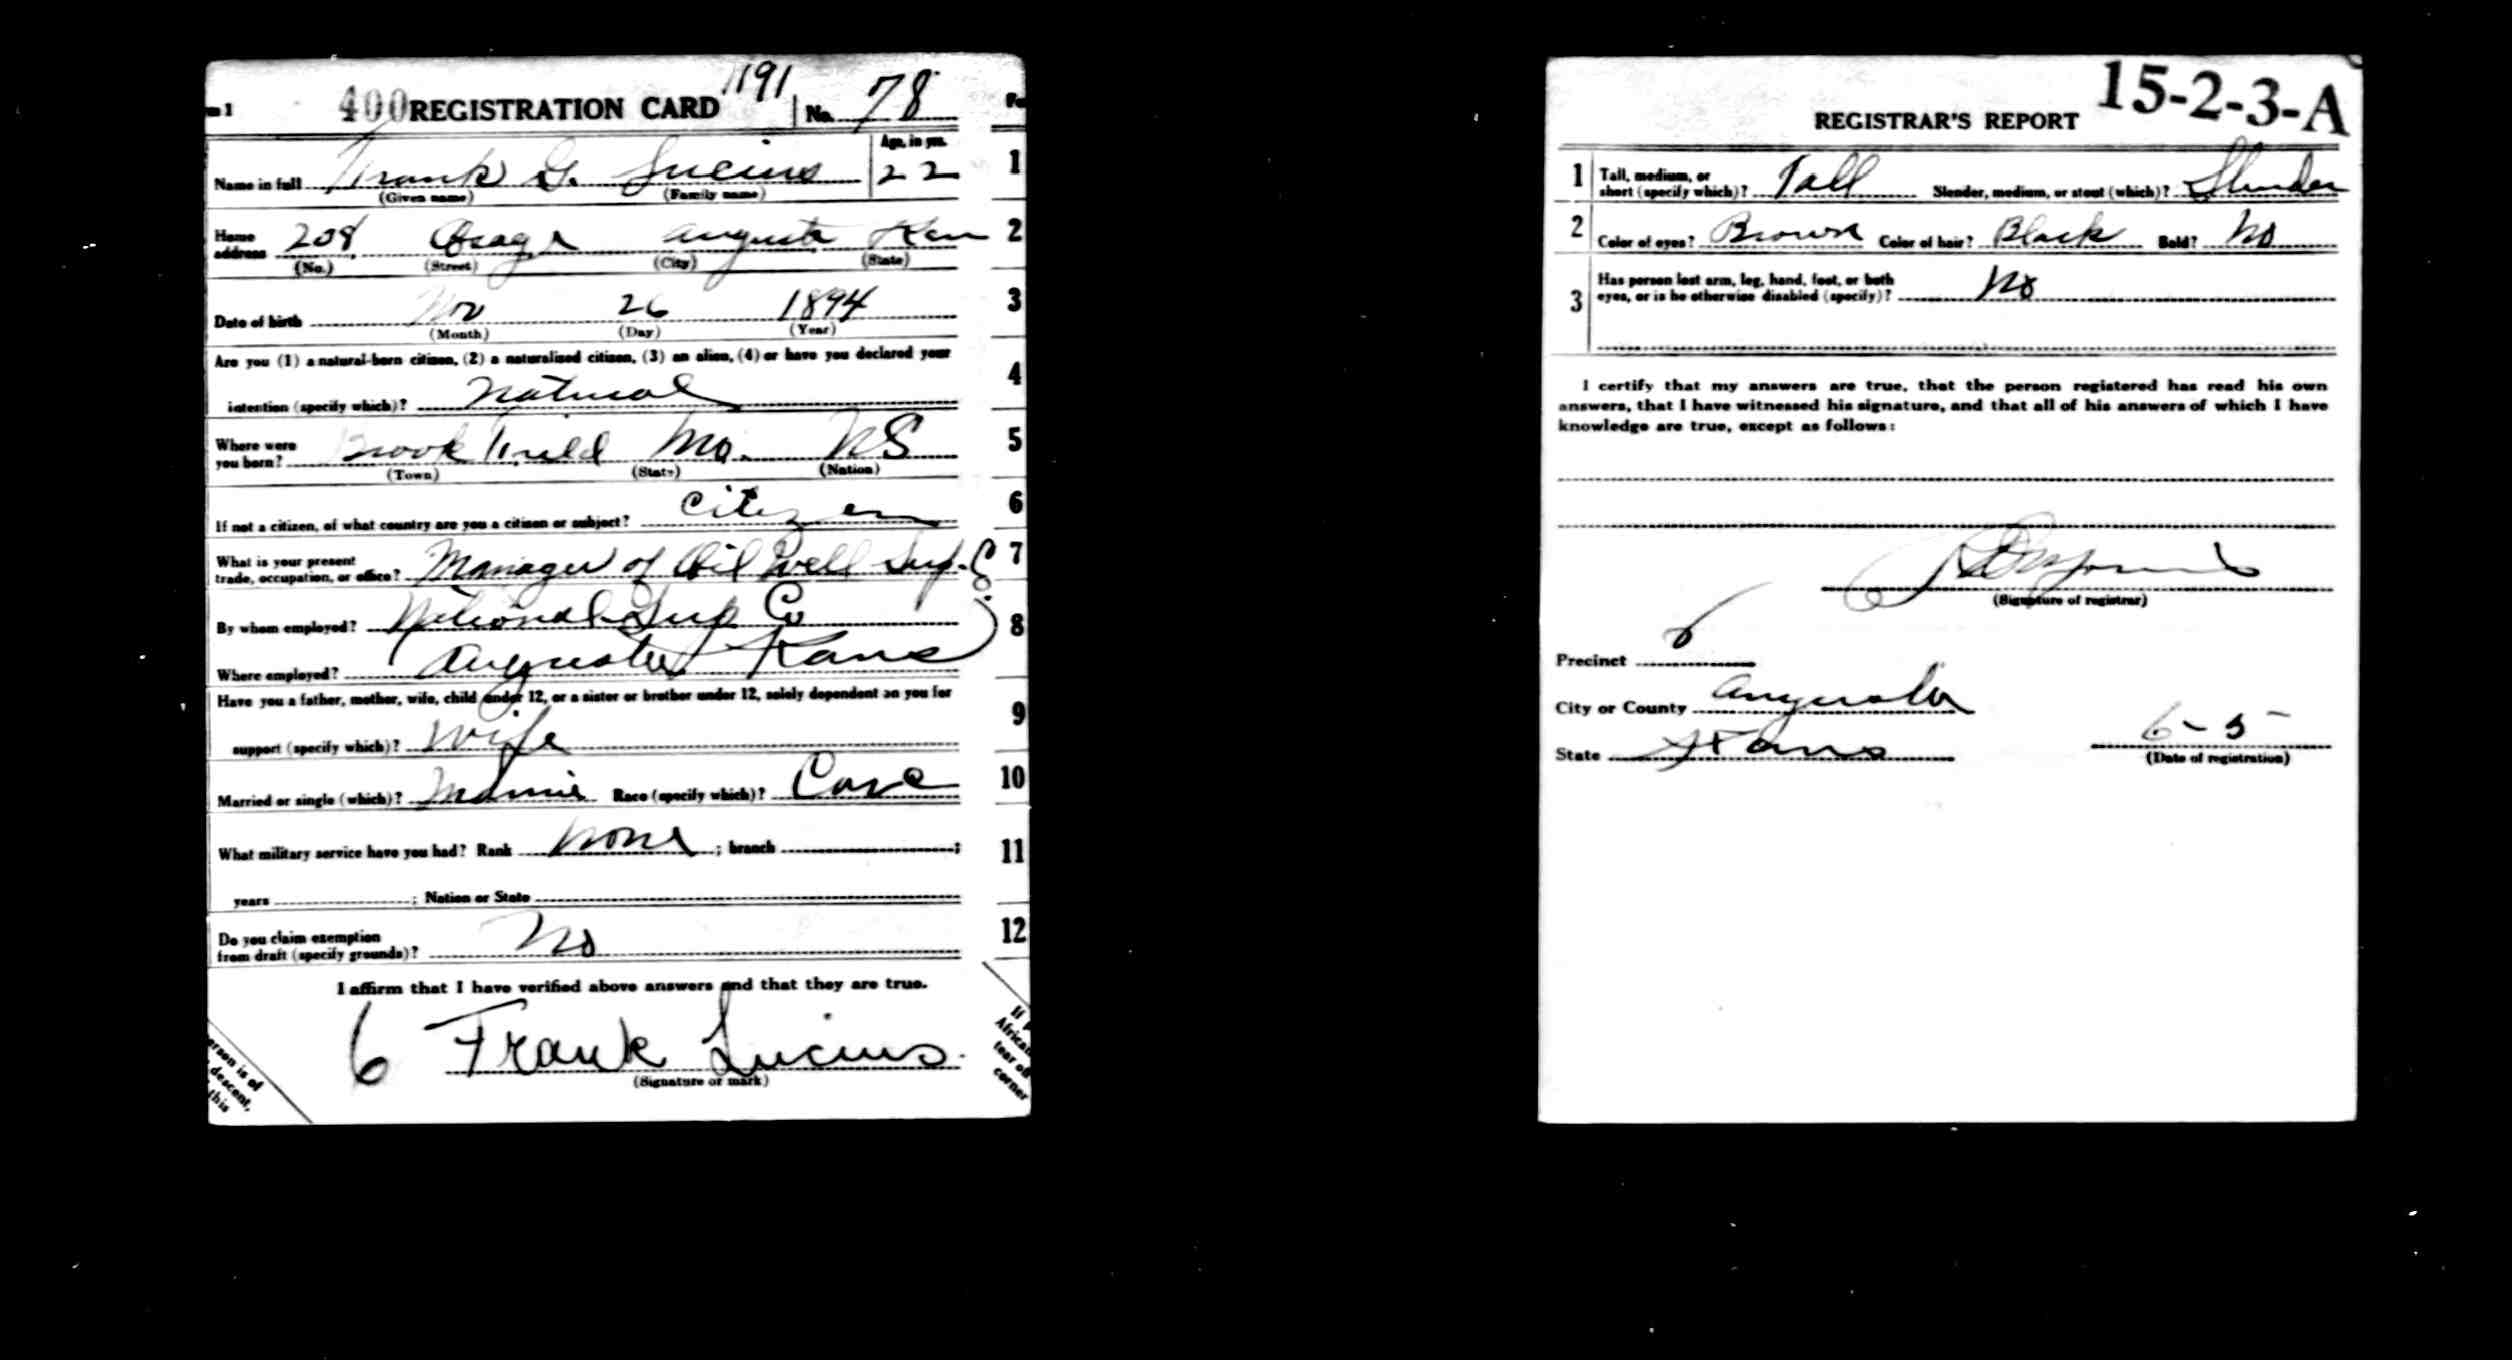 m 1 400 REGISTRATION CARD 1191 No. 78 Fo
Name in full Frank G. Lucius Age, in yrs. 22 1
(Given name) (Family name)
Home address 208 Osage Augusta Kan 2
(No.) (Street) (City) (State)
Date of birth Nov 26 1894 3
(Month) (Day) (Year)
Are you (1) a natural-born citizen, (2) a naturalized citizen, (3) an alien, (4) or have you declared your
intention (specify which)? Natural 4
Where were you born? Brookfield Mo. US 5
(Town) (State) (Nation)
If not a citizen, of what country are you a citizen or subject? Citizen 6
What is your present trade, occupation, or office? Manager of Oil Well Sup. Co. 7
By whom employed? National Sup Co 8
Where employed? Augusta Kans
Have you a father, mother, wife, child under 12, or a sister or brother under 12, solely dependent on you for
support (specify which)? Wife 9
Married or single (which)? Race (specify which)? 10
What military service have you had? Rank None ; branch ; 11
years ; Nation or State
Do you claim exemption from draft (specify grounds)? No 12
I affirm that I have verified above answers and that they are true.
6 Frank Lucius.
(Signature or mark)
erson is of
descent,
this
If p
African
tear off
corner
15-2-3-A
REGISTRAR'S REPORT
1 Tall, medium, or short (specify which)? Tall Slender, medium, or stout (which)? Slender
2 Color of eyes? Brown Color of hair? Black Bald? No
3 Has person lost arm, leg, hand, foot, or both eyes, or is he otherwise disabled (specify)? No
I certify that my answers are true, that the person registered has read his own
answers, that I have witnessed his signature, and that all of his answers of which I have
knowledge are true, except as follows:
(Signature of registrar)
Precinct 6
City or County Augusta
State Kans 6-5-
(Date of registration)